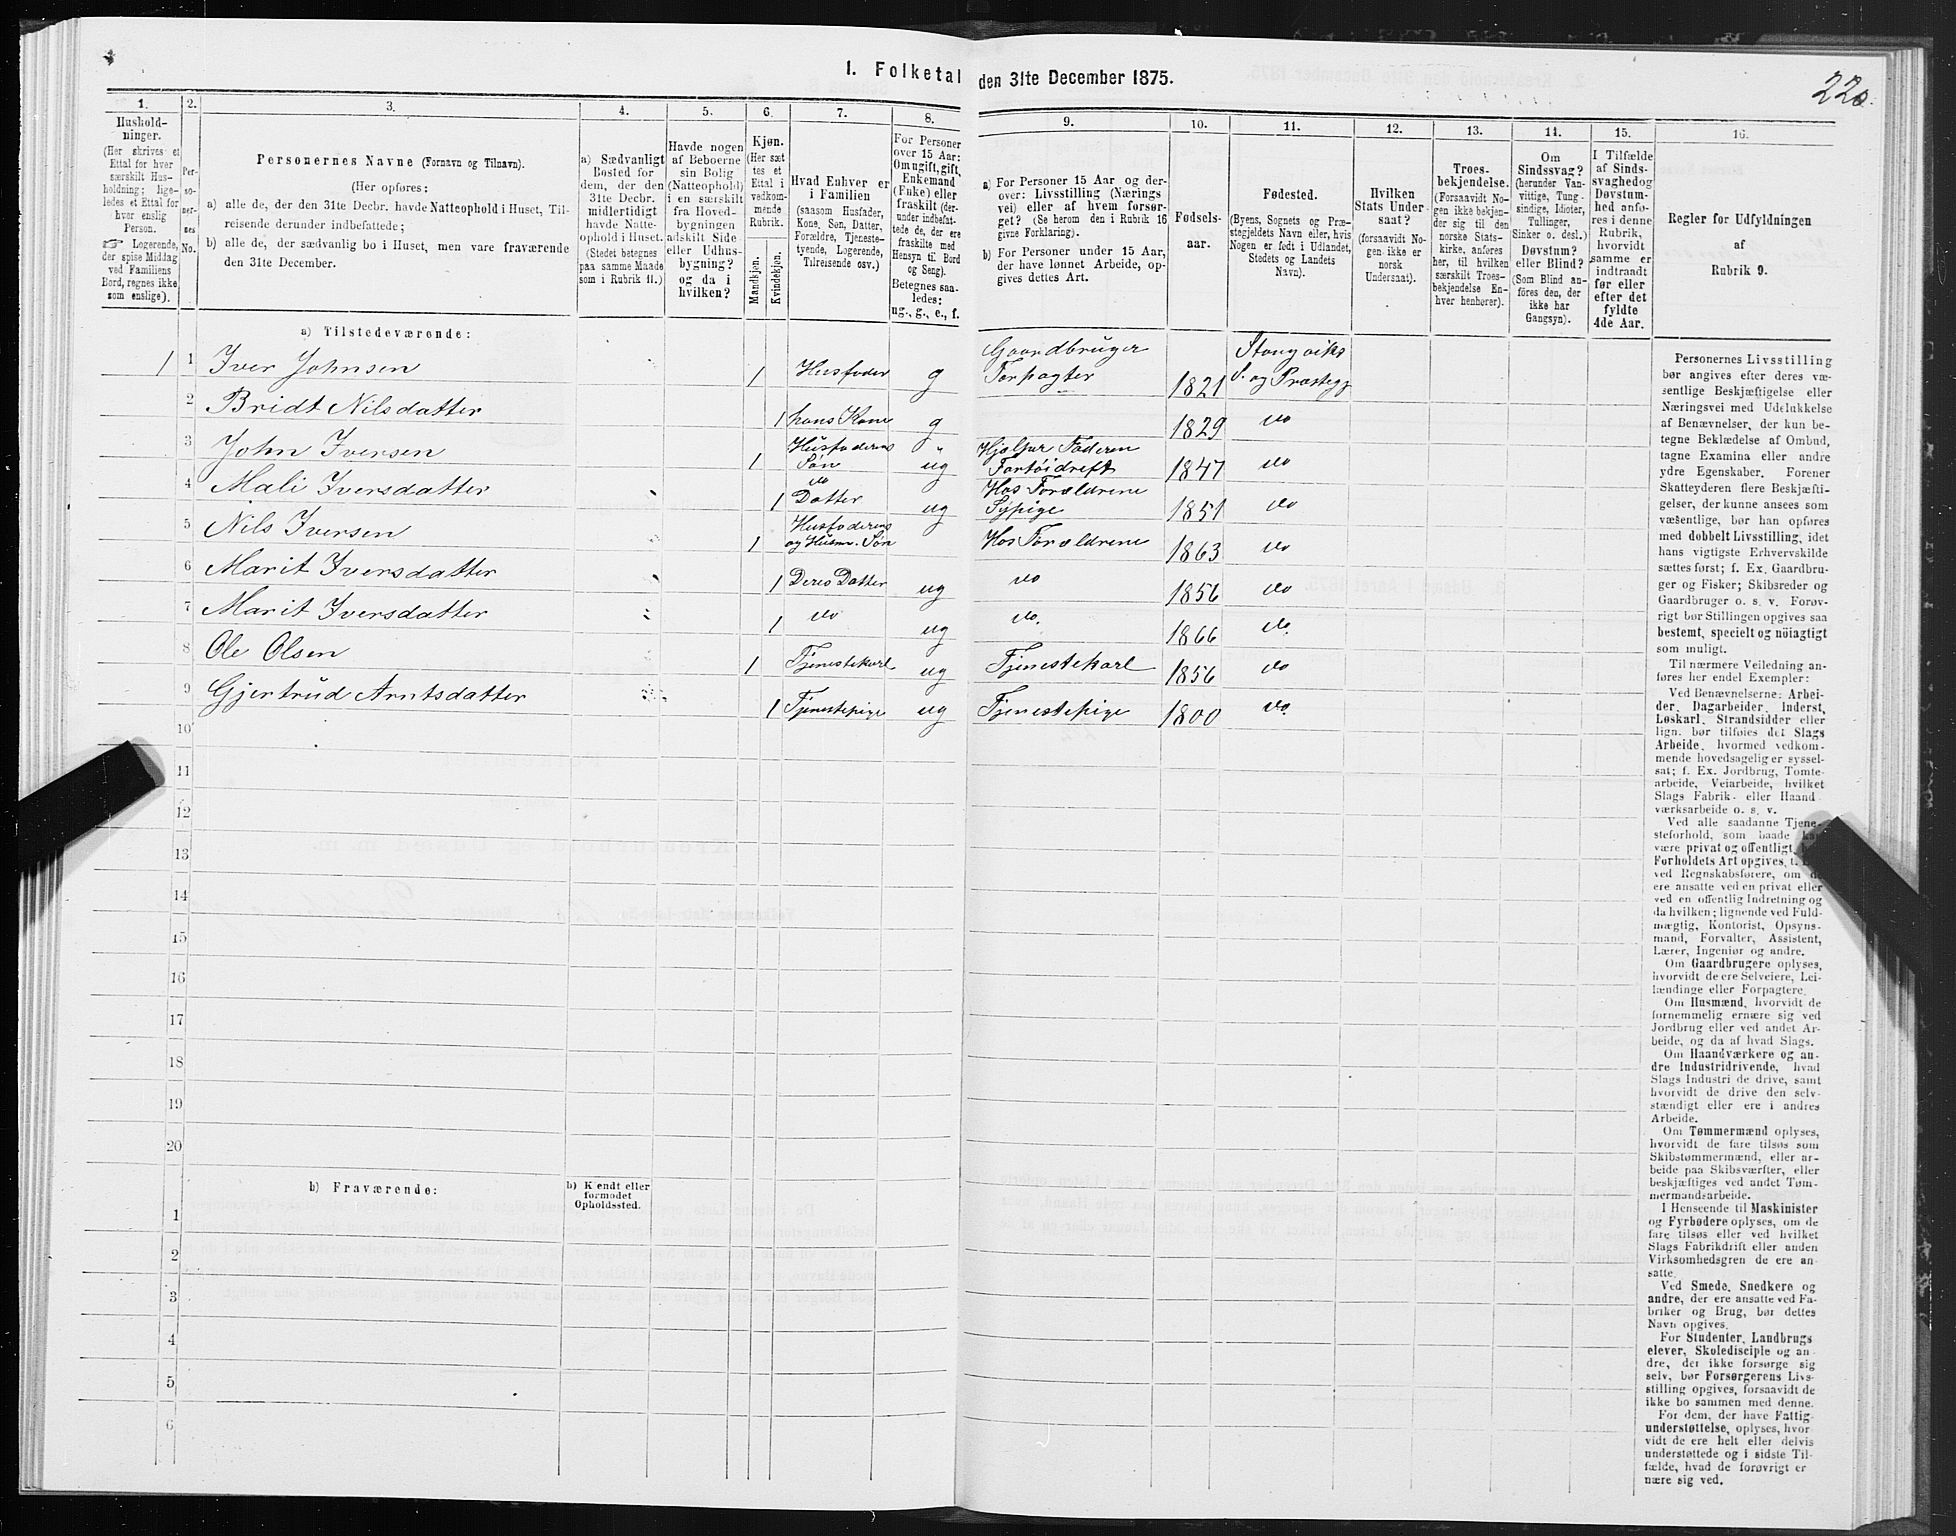 1. Folketal den 31te December 1875.
220.
1.
Hushold-
ninger.
(Her skrives et
Ettal for hver
særskilt Hus-
holdning; lige-
ledes et Ettal for
hver enslig
Person.
☞ Logerende,
der spise Middag
ved Familiens
Bord, regnes ikke
som enslige).
2.
Per-
so-
ner-
nes
No.
3.
Personernes Navne (Fornavn og Tilnavn).
(Her opføres:
a) alle de, der den 31te Decbr. havde Natteophold i Huset, Til-
reisende derunder indbefattede;
b) alle de, der sædvanlig bo i Huset, men vare fraværende
den 31te December.
4.
a) Sædvanligt
Bosted for
dem, der den
31te Decbr.
midlertidigt
havde Natte-
ophold i Huset.
(Stedet betegnes
paa samme Maade
som i Rubrik 11.)
5.
Havde nogen
af Beboerne
sin Bolig
(Natteophold)
i en særskilt
fra Hoved-
bygningen
adskilt Side-
eller Udhus-
bygning?
og da i
hvilken?
6.
Kjøn.
(Her sæt-
tes et
Ettal i
vedkom-
mende
Rubrik.
Mandkjøn.
Kvindekjøn.
7.
Hvad Enhver er
i Familien
(saasom Husfader,
Kone, Søn, Datter,
Forældre, Tjeneste-
tyende, Logerende,
Tilreisende osv.)
8.
For Personer
over 15 Aar:
Om ugift, gift,
Enkemand
(Enke) eller
fraskilt (der-
under indbefat-
tede de, der ere
fraskilte med
Hensyn til Bord
og Seng).
Betegnes saa-
ledes:
ug., g., e., f.
9.
a) For Personer 15 Aar og der-
over: Livsstilling (Nærings-
vei) eller af hvem forsør-
get? (Se herom den i Rubrik 16
givne Forklaring).
b) For Personer under 15 Aar,
der have lønnet Arbeide, op-
gives dettes Art.
10.
Fødsels-
aar.
11.
Fødested.
(Byens, Sognets og Præ-
stegjeldets Navn eller, hvis
Nogen er født i Udlandet,
Stedets og Landets
Navn).
12.
Hvilken
Stats Under-
saat?
(forsaavidt No-
gen ikke er
norsk
Undersaat).
13.
Troes-
bekjendelse.
(Forsaavidt No-
gen ikke bekjen-
der sig til den
norske Stats-
kirke, anføres
her, til hvilken
særskilt Troes-
bekjendelse En-
hver henhører).
14.
Om
Sindssvag?
(herunder Van-
vittige, Tung-
sindige, Idioter,
Tullinger,
Sinker o. desl.)
Døvstum?
eller Blind?
(Som Blind an-
føres den, der
ikke har
Gangsyn).
15.
I Tilfælde
af Sinds-
svaghed og
Døvstum-
hed anfø-
res i denne
Rubrik,
hvorvidt
samme er
indtraadt
før eller
efter det
fyldte
4de Aar.
16.
Regler for Udfyldningen
af
Rubrik 9.
a) Tilstedeværende:
1 1 Iver Johnsen 1 Husfader g Gaardbruger Forpagter 1821 Stangviks S. og Præstegj
2 Bridt Nilsdatter 1 hans Kone g 1829 do
3 John Iversen 1 Husfaderens Søn " ug Hjælper Faderen 1847 do
4 Mali Iversdatter 1 do Datter ug Hos Forældrene Sypige 1851 do
5 Nils Iversen 1 Husfaderens og Husm. Søn Hos Forældrene 1863 do
6 Marit Iversdatter 1 Deres Datter ug do 1856 do
7 Marit Iversdatter 1 do ug do. 1866 do.
8 Ole Olsen 1 Tjenestekarl ug Tjenestekarl 1856 do
9 Gjertrud Arntsdatter 1 Tjenestepige ug Tjenestepige 1800 do.
10
11
12
13
14
15
16
17
18
19
20
b) Fraværende:
b) Kjendt eller
formodet
Opholdssted.
1
2
3
4
5
6
Personernes Livsstilling
bør angives efter deres væ-
sentlige Beskjæftigelse eller
Næringsvei med Udelukkelse
af Benævnelser, der kun be-
tegne Beklædelse af Ombud,
tagne Examina eller andre
ydre Egenskaber. Forener
Skatteyderen flere Beskjæfti-
gelser, der kunne ansees som
væsentlige, bør han opføres
med dobbelt Livsstilling, idet
hans vigtigste Erhvervskilde
sættes først; f. Ex. Gaardbru-
ger og Fisker; Skibsreder og
Gaardbruger o. s. v. Forøv-
rigt bør Stillingen opgives saa
bestemt, specielt og nøiagtigt
som muligt.
Til nærmere Veiledning an-
føres her endel Exempler:
Ved Benævnelserne: Arbei-
der, Dagarbeider, Inderst,
Løskarl, Strandsidder eller
lign. bør tilføies det Slags
Arbeide, hvormed vedkom-
mende hovedsagelig er syssel-
sat; f. Ex. Jordbrug, Tomte-
arbeide, Veiarbeide, hvilket
Slags Fabrik- eller Haand-
værksarbeide o. s. v.
Ved alle saadanne Tjene-
steforhold, som baade kan
være privat og offentligt,
Forholdets Art opgives, t.
ved Regnskabsførere, om de
ere ansatte ved en privat eller
ved en offentlig Indretning og
da hvilken; lignende ved Fuld-
mægtig, Kontorist, Opsyns-
mand, Forvalter, Assistent,
Lærer, Ingeniør og andre.
Om Gaardbrugere oplyses,
hvorvidt de ere Selveiere, Lei-
lændinge eller Forpagtere.
Om Husmænd, hvorvidt de
fornemmelig ernære sig ved
Jordbrug eller ved andet Ar-
beide, og da af hvad Slags.
Om Haandværkere og an-
dre Industridrivende, hvad
Slags Industri de drive, samt
hvorvidt de drive den selv-
stændigt eller ere i andres
Arbeide.
Om Tømmermænd oplyses,
hvorvidt de fare tilsøs som
Skibstømmermænd, eller ar-
beide paa Skibsværfter, eller
beskjæftiges ved andet Tøm-
mermandsarbeide.
I Henseende til Maskinister
og Fyrbødere oplyses, om de
fare tilsøs eller ved hvilket
Slags Fabrikdrift eller anden
Virksomhedsgren de ere an-
satte.
Ved Smede, Snedkere og
andre, der ere ansatte ved Fa-
briker og Brug, bør dettes
Navn opgives.
For Studenter, Landbrugs-
elever, Skoledisciple og an-
dre, der ikke forsørge sig
selv, bør Forsørgerens Livs-
stilling opgives, forsaavidt de
ikke bo sammen med denne.
For dem, der have Fattig-
understøttelse, oplyses, hvor-
vidt de ere helt eller delvis
understøttede og i sidste Til-
fælde, hvad de forøvrigt er
nære sig ved.